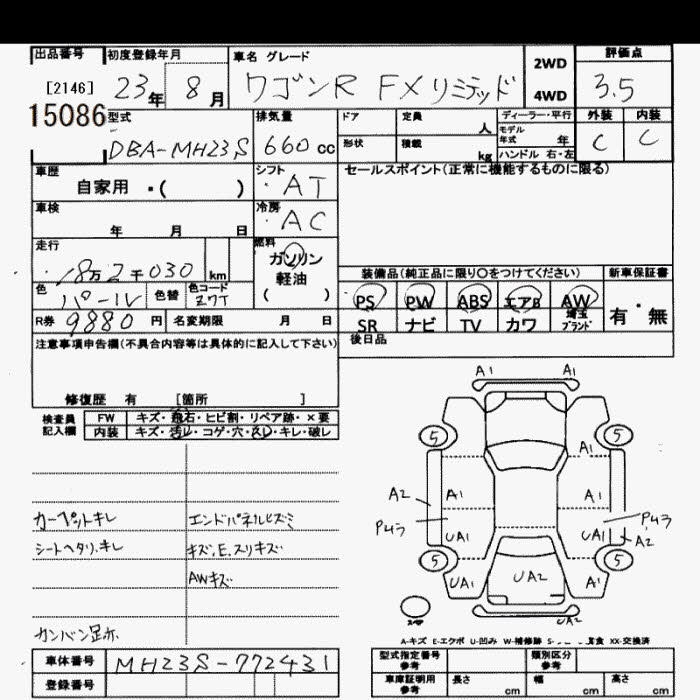 出品番号 初度登録年月 車名 グレード 評価点
[2146] 23年 8月 ワゴンR FXリミテッド 2WD 4WD 3.5
15086 型式 排気量 ドア 定員 人 ディーラー・平行 外装 内装
DBA-MH23S 660cc 形状 積載 kg モデル年式 年 C C
ハンドル 右・左
車歴 シフト セールスポイント(正常に機能するものに限る)
自家用 ・( ) ・AT
車検 冷房
年 月 日 ・AC
走行 燃料
18万2千030 km ガソリン
軽油
( )
装備品(純正品に限り○をつけてください) 新車保証書
色 パール 色替 色コード Z7T
PS PW ABS エアB AW 有・無
SR ナビ TV カワ 埼玉ブランド
R券 9880円 名変期限 月 日
注意事項申告欄(不具合内容等は具体的に記入して下さい) 後日品
修復歴 有 [箇所 ]
検査員記入欄 FW キズ・飛石・ヒビ割・リペア跡・×要
内装 キズ・汚レ・コゲ・穴・スレ・キレ・破レ
A1 A1
5 5
A1
A2 A1 A1
Pムラ Pムラ
UA1 UA1 A2
5 5
UA1 UA2 A1
UA2
カーペットキレ エンドパネルヒズミ
シートヘタリ、キレ キズ、E、スリキズ
AWキズ
カンバン足赤
A-キズ E-エクボ U-凹み W-補修跡 S- 腐食 XX-交換済
車体番号 MH23S-772431
登録番号
型式指定番号 参考 類別区分 参考
車庫証明用 参考 長さ cm 幅 cm 高さ cm